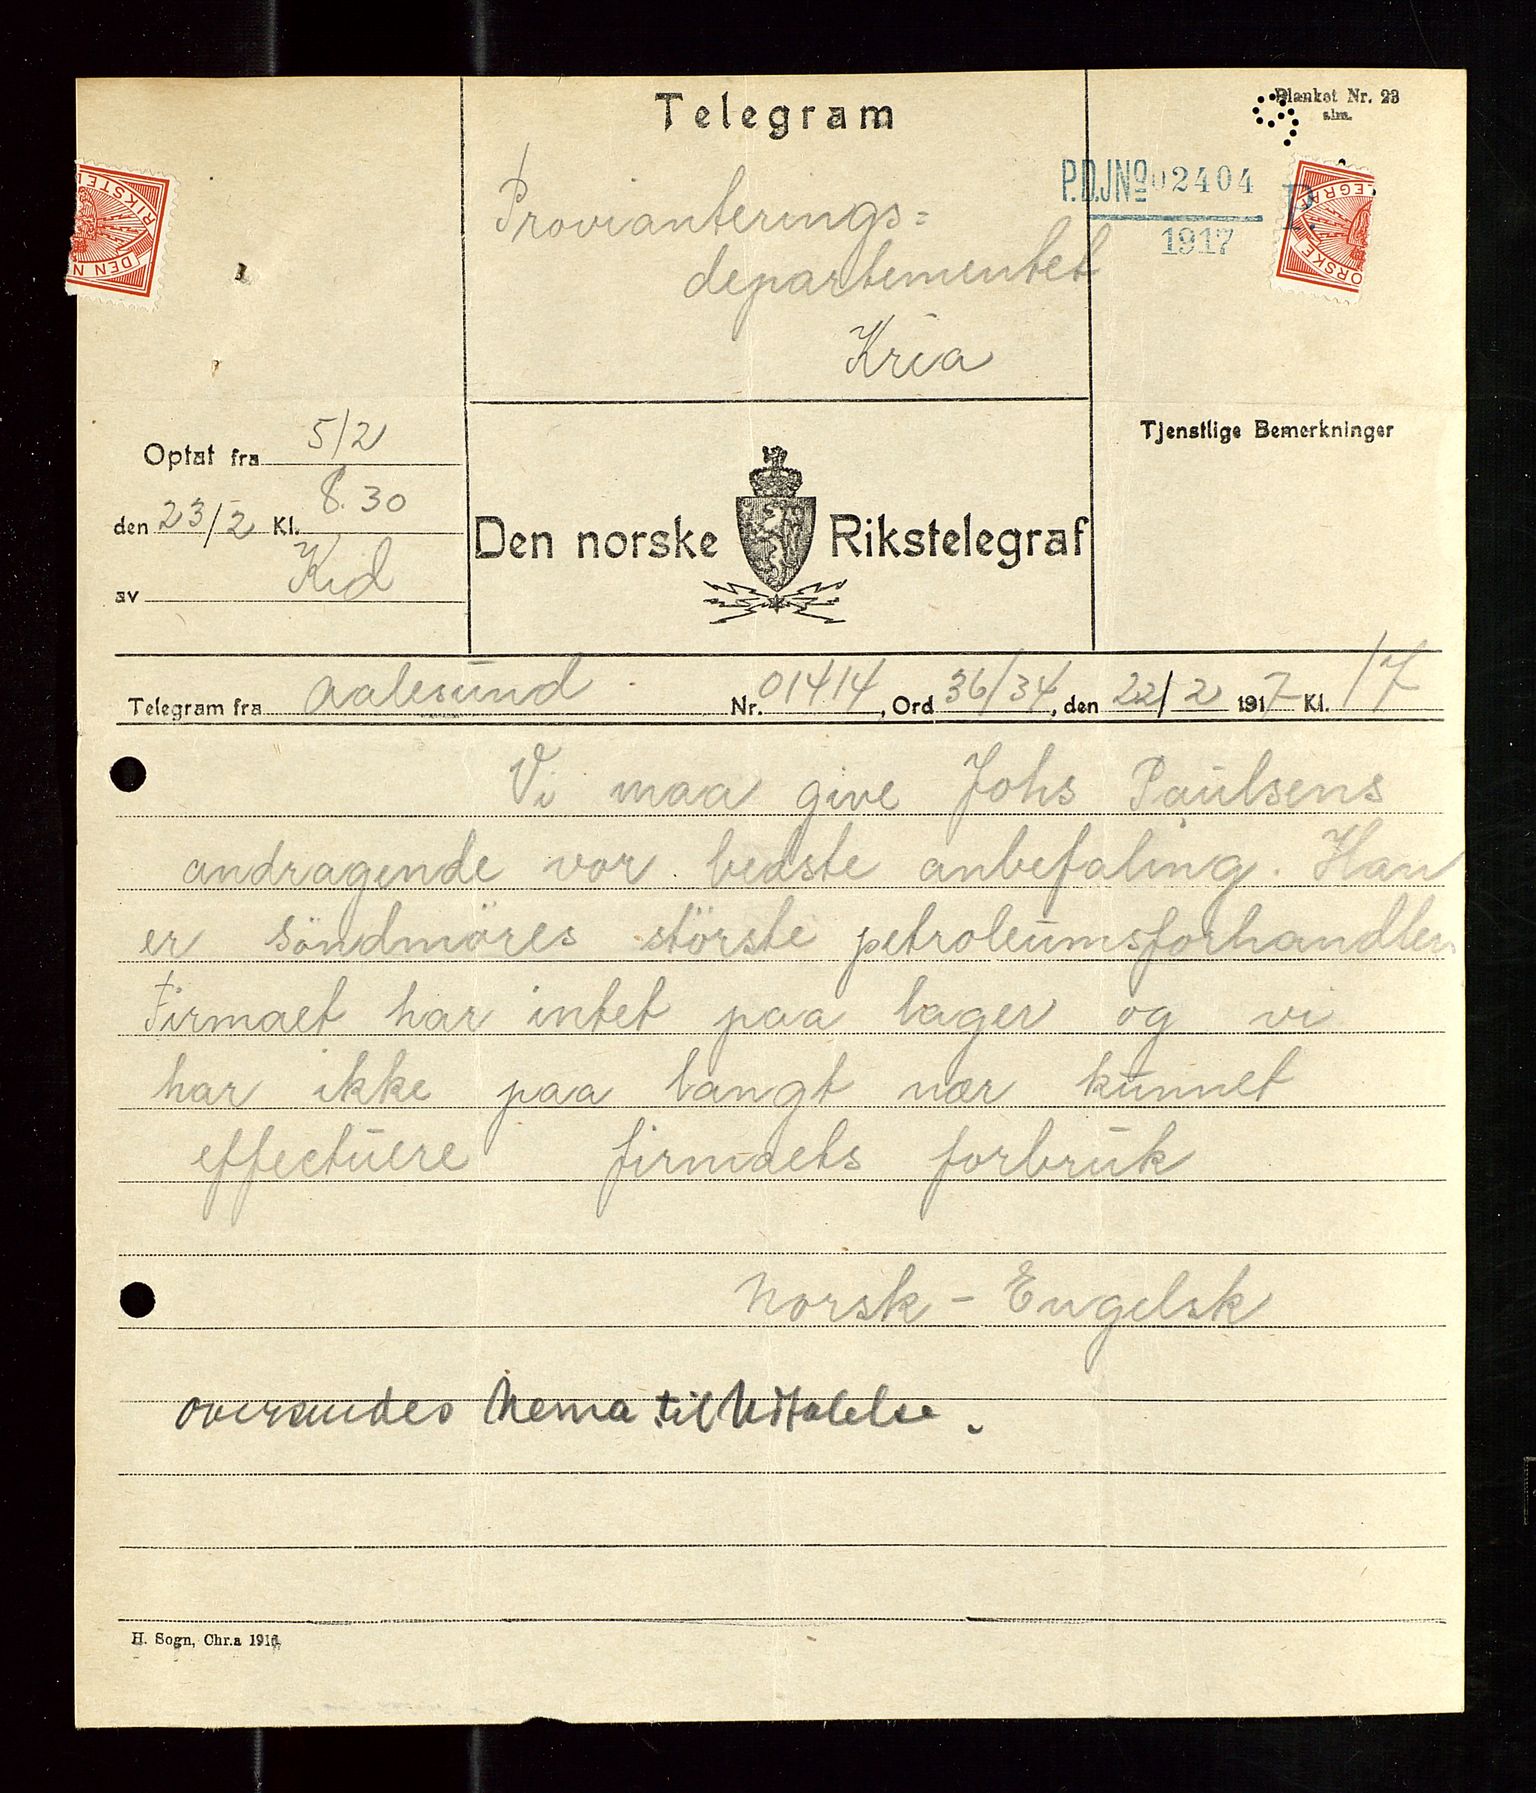 Telegram
Blanket Nr. 23
alm.
P.D.JNo 02404
1917
P.
Provianterings=
departementet
Kria
Optat fra 5/2
den 23/2 Kl. 8.30
av Kid
Tjenstlige Bemerkninger
Den norske Rikstelegraf
Telegram fra Aalesund Nr. 01414, Ord 36/34, den 22/2 1917 Kl. 17
Vi maa give Johs Paulsens
andragende vor bedste anbefaling. Han
er Söndmöres störste petroleumsforhandler
Firmaet har intet paa lager og vi
har ikke paa langt nær kunnet
effectuere firmaets forbruk
Norsk - Engelsk
oversendes Nema til Uttalelse.
H. Sogn, Chr.a 1916